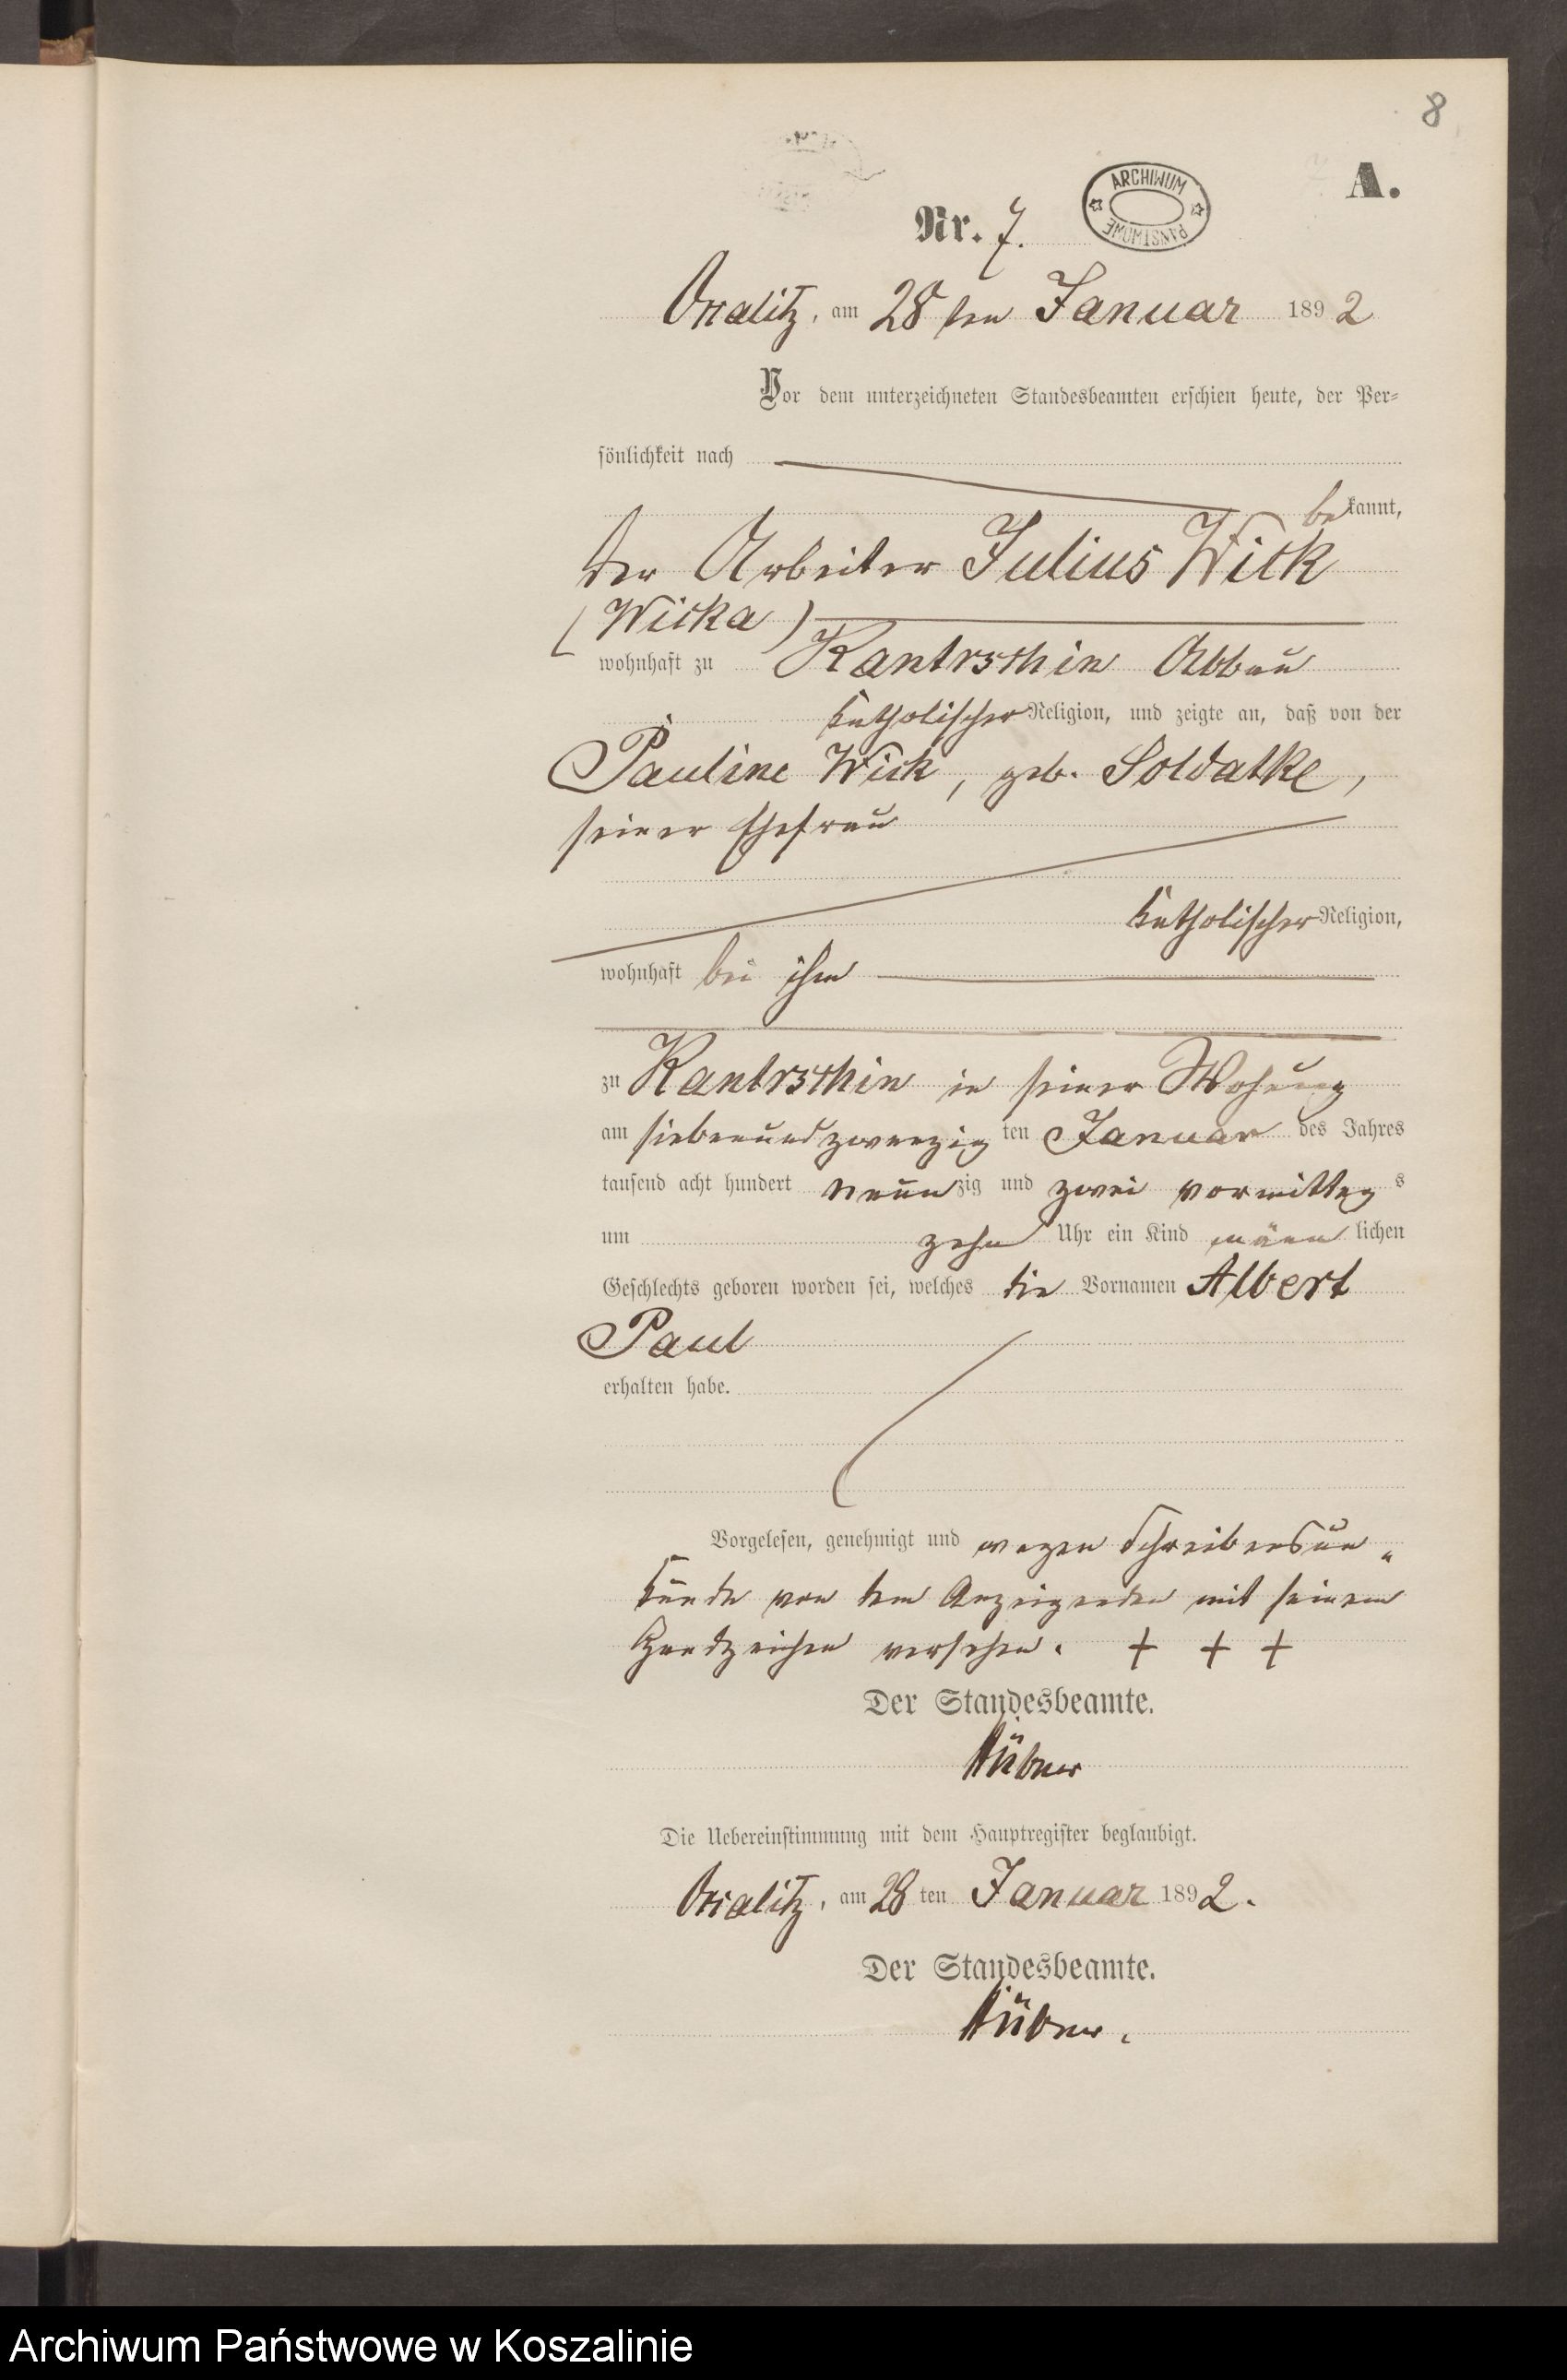 8
A.
ARCHIWUM PAŃSTWOWE
Nr. 7.
Ossalitz, am 28 ten Januar 1892
Vor dem unterzeichneten Standesbeamten erschien heute, der Per=
sönlichkeit nach
bekannt,
der Arbeiter Julius Wick
(Wicka)
wohnhaft zu Kantrschin Abbau
katholischer Religion, und zeigte an, daß von der
Pauline Wick, geb. Soldatke,
seiner Ehefrau
katholischer Religion,
wohnhaft bei ihm
zu Kantrschin in seiner Wohnung
am siebenundzwanzig ten Januar des Jahres
tausend acht hundert neunzig und zwei vormittags
um zehn Uhr ein Kind männlichen
Geschlechts geboren worden sei, welches die Vornamen Albert
Paul
erhalten habe.
Vorgelesen, genehmigt und wegen Schreibensun„
kunde von dem Anzeigenden mit seinem
Handzeichen versehen. + + +
Der Standesbeamte.
Hübner
Die Uebereinstimmung mit dem Hauptregister beglaubigt.
Ossalitz, am 28 ten Januar 1892.
Der Standesbeamte.
Hübner.
Archiwum Państwowe w Koszalinie